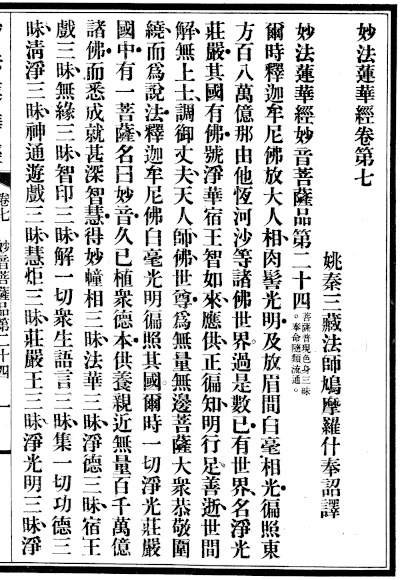 妙法蓮華經卷第七
姚秦三藏法師鳩摩羅什奉詔譯
妙法蓮華經妙音菩薩品第二十四 菩薩普現色身三昧。奉命隨類流通。
爾時釋迦牟尼佛放大人相肉髻光明及放眉間白毫相光徧照東
方百八萬億那由他恆河沙等諸佛世界過是數已有世界名淨光
莊嚴其國有佛號淨華宿王智如來應供正徧知明行足善逝世間
解無上士調御丈夫天人師佛世尊爲無量無邊菩薩大衆恭敬圍
繞而爲說法釋迦牟尼佛白毫光明徧照其國爾時一切淨光莊嚴
國中有一菩薩名曰妙音久已植衆德本供養親近無量百千萬億
諸佛而悉成就甚深智慧得妙幢相三昧法華三昧淨德三昧宿王
戲三昧無緣三昧智印三昧解一切衆生語言三昧集一切功德三
昧清淨三昧神通遊戲三昧慧炬三昧莊嚴王三昧淨光明三昧淨
卷七 妙音菩薩品第二十四 一